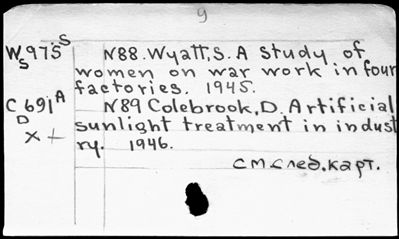 9
W975 S N88. Wyatt, S. A study of
S
women on war work in four
factories. 1945.
C691 A N89 Colebrook, D. Artificial
D
sunlight treatment in indust
x +
ry. 1946.